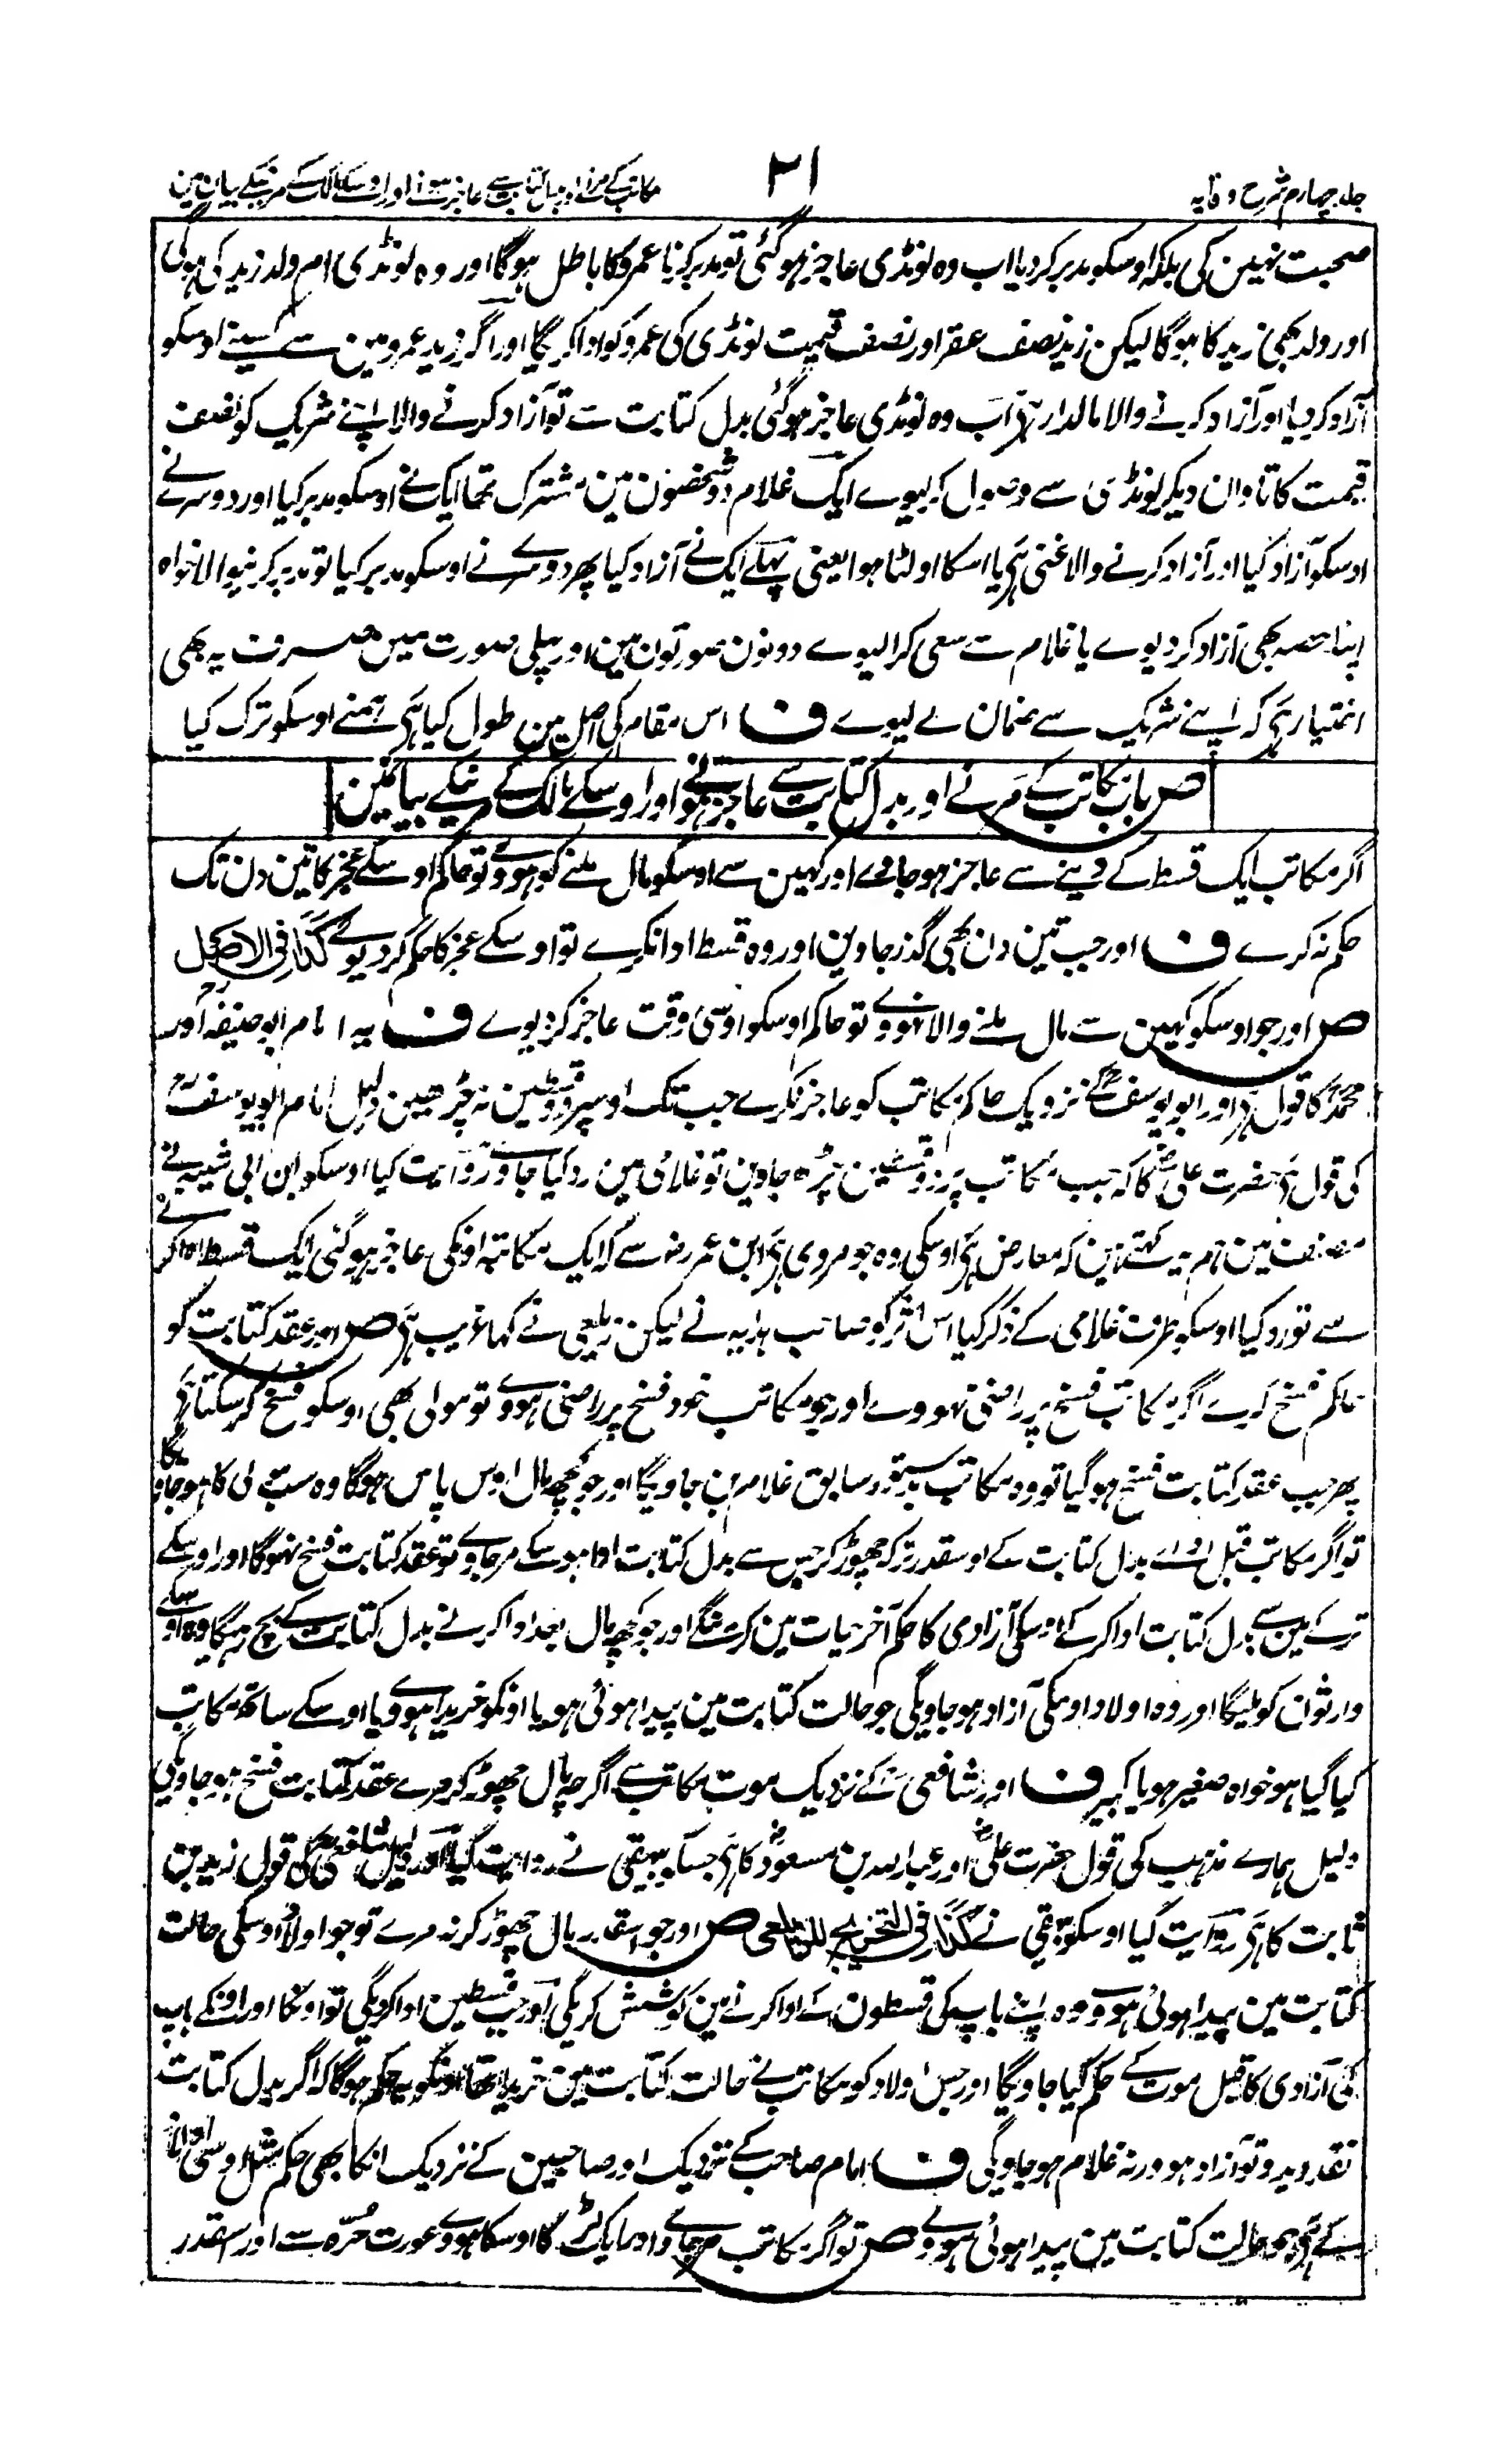 جلد چہارم شرح وقایہ
۲۱
مکاتب کے مرنے اور بدل کتابت سے عاجز ہونے اور اوسکے مالک کے مرنیکے بیان مین
صحبت نہین کی بلکہ اوسکو مدبر کردیا اب وہ لونڈی عاجز ہو گئی تو مدبر کرنا عمرو کا باطل ہوگا اور وہ لونڈی ام ولد زید کی ہوگی
اور ولد بھی زید کا ہوگا لیکن زید نصف عقر اور نصف قیمت لونڈی کی عمرو کو ادا کریگا اور اگر زید عمرو مین سے کسینے اوسکو
آزاد کر دیا اور آزاد کرنے والا مالدار ہی اب وہ لونڈی عاجز ہو گئی بدل کتابت سے تو آزاد کرنے والا اپنے شریک کو نصف
قیمت کا تاوان دیکر لونڈی سے وصول کر لیوے ایک غلام دو شخصون مین مشترک تھا ایک نے اوسکو مدبر کیا اور دوسرے نے
اوسکو آزاد کیا اور آزاد کرنے والا غنی ہی یا اسکا اولٹا ہوا یعنی پہلے ایک نے آزاد کیا پھر دوسرے نے اوسکو مدبر کیا تو مدبر کرنیوالا خواہ
اپنا حصہ بھی آزاد کر دیوے یا غلام سے سعی کرا لیوے دونون صورتون مین اور پہلی صورت میں صرف یہ بھی
اختیار ہی کہ اپنے شریک سے ضمان لے لیوے ف اس مقام کی اصل مین طول کیا ہی ہمنے اوسکو ترک کیا
ص باب مکاتب کے مرنے اور بدل کتابت سے عاجز ہونے اور اوسکے مالک کے مرنیکے بیانمین
اگر مکاتب ایک قسط کے دینے سے عاجز ہو جاوے اور کہین سے اوسکو مال ملنے کو ہووے تو حاکم اوسکے عجز کا تین دن تک
حکم نہ کرے ف اور جب تین دن بھی گذر جاوین اور وہ قسط ادا نکرے تو اوسکے عجز کا حکم کر دیوے کذا فی الاصل
ص اور جو اوسکو کہین سے مال ملنے والا نہووے تو حاکم اوسکو اوسی وقت عاجز کر دیوے ف یہ امام ابو حنیفہ اور
محمد کا قول ہی اور ابو یوسف کے نزدیک حاکم مکاتب کو عاجز نکرے جب تک اوسپر دو قسطین نہ چڑھین دلیل امام ابو یوسف
کی قول ہی حضرت علی کا کہ جب مکاتب پر دو قسطین چڑہ جاوین تو غلامی مین رد کیا جاوے روایت کیا اوسکو ابن ابی شیبہ نے
مصنف مین ہم یہ کہتے ہین کہ معارض ہی اوسکی وہ جو مروی ہی ابن عمر رض سے کہ ایک مکاتبہ اونکی عاجز ہو گئی ایک قسط ادا کرنے
سے تو رد کیا اوسکو طرف غلامی کے ذکر کیا اس اثر کو صاحب ہدایہ نے لیکن زیلعی نے کہا غریب ہی ص اور عقد کتابت کو
حاکم فسخ کرے اگر مکاتب فسخ پر راضی نہووے اور جو مکاتب خود فسخ پر راضی ہووے تو مولی بھی اوسکو فسخ کر سکتا ہی
پھر جب عقد کتابت فسخ ہو گیا تو وہ مکاتب بدستور سابق غلام بن جاویگا اور جو کچھ مال اوس پاس ہوگا وہ سب مولی کا ہو جاویگا
تو اگر مکاتب قبل ادائے بدل کتابت کے اوسقدر ترکہ چھوڑ کر جس سے بدل کتابت ادا ہو سکے مر جاوے تو عقد کتابت فسخ نہوگا اور اوسکے
ترکے مین سے بدل کتابت ادا کر کے اوسکی آزادی کا حکم آخر حیات مین کرینگے اور جو کچھ مال بعد ادا کرنے بدل کتابت کے بچ رہیگا وہ اوسکے
وارثون کو ملیگا اور وہ اولاد اوسکی آزاد ہو جاویگی جو حالت کتابت مین پیدا ہوئی ہو یا اونکو خریدا ہووے یا اوسکے ساتھ مکاتب
کیا گیا ہو خواہ صغیر ہو یا کبیر ف اور شافعی کے نزدیک موت مکاتب سے اگرچہ مال چھوڑ کر مرے عقد کتابت فسخ ہو جاویگی
دلیل ہمارے مذہب کی قول حضرت علی اور عبد اللہ بن مسعود کا ہی جسکو بیہقی نے روایت کیا اور دلیل شافعی کی قول زید بن
ثابت کا ہی روایت کیا اوسکو بیہقی نے کذا فی التخریج للزیلعی ص اور جو اسقدر مال چھوڑ کر نہ مرے تو جو اولاد اوسکی حالت
کتابت مین پیدا ہوئی ہووے وہ اپنے باپ کی قسطون کے ادا کرنے مین کوشش کریگی اور جب قسطین ادا کر دیگی تو اونکا اور اونکے باپ
کی آزادی کا قبل موت کے حکم کیا جاویگا اور جس اولاد کو مکاتب نے حالت کتابت مین خریدا تھا اونکو یہ حکم ہوگا کہ اگر بدل کتابت
نقد دیدو تو آزاد ہو ورنہ غلام ہو جاویگی ف امام صاحب کے نزدیک اور صاحبین کے نزدیک انکا بھی حکم مثل اوسی اولاد
کے ہی جو حالت کتابت مین پیدا ہوئی ہووے ص تو اگر مکاتب مر جاوے اور ایک لڑکا اوسکا ہووے عورت حرہ سے اور اسقدر